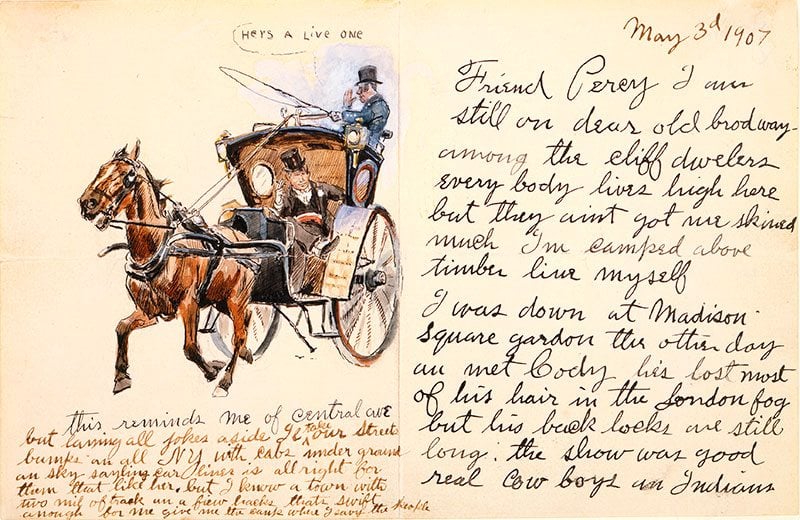 HERS A LIVE ONE
this reminds me of central ave
but laning all jokes aside Il take our streets
bumps an all NY with cabs under ground
an sky sayling car lines is all right for
them that like her. but I know a town with
two mil of track an a fiew hacks thats swift
anough for me give me the camp where I savy the people
May 3d 1907
Friend Percy I am
still on dear old brodway
among the cliff dwelers
every body lives high here
but they aint got me skined
much Im camped above
timber line myself
I was down at Madison
Square gardon the other day
an met Cody hes lost most
of his hair in the London fog
but his back locks are still
long. the show was good
real cow boys an Indians